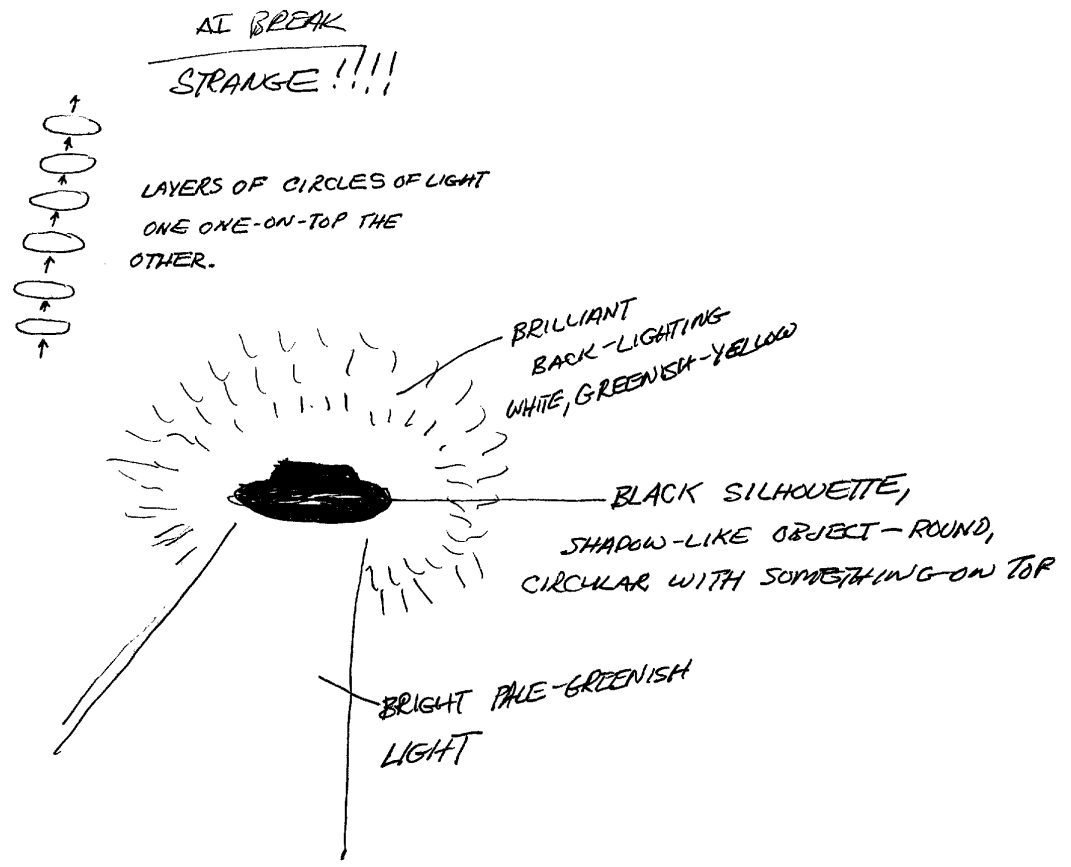 AI BREAK
STRANGE!!!!
LAYERS OF CIRCLES OF LIGHT
ONE ONE-ON-TOP THE
OTHER.
BRILLIANT
BACK-LIGHTING
WHITE, GREENISH-YELLOW
BLACK SILHOUETTE,
SHADOW-LIKE OBJECT-ROUND,
CIRCULAR WITH SOMETHING-ON TOP
BRIGHT PALE-GREENISH
LIGHT